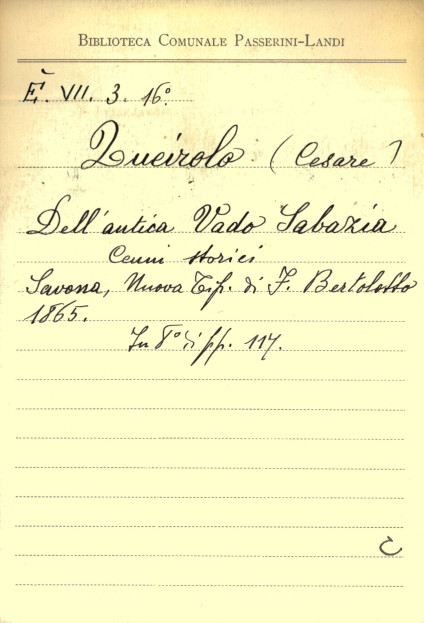 BIBLIOTECA COMUNALE PASSERINI-LANDI
Ē. VII. 3. 16°.
Queirolo (Cesare)
Dell'antica Vado Sabazia
Cenni storici
Savona, Nuova Tip. di F. Bertolotto
1865.
In 8° di pp. 117.
C